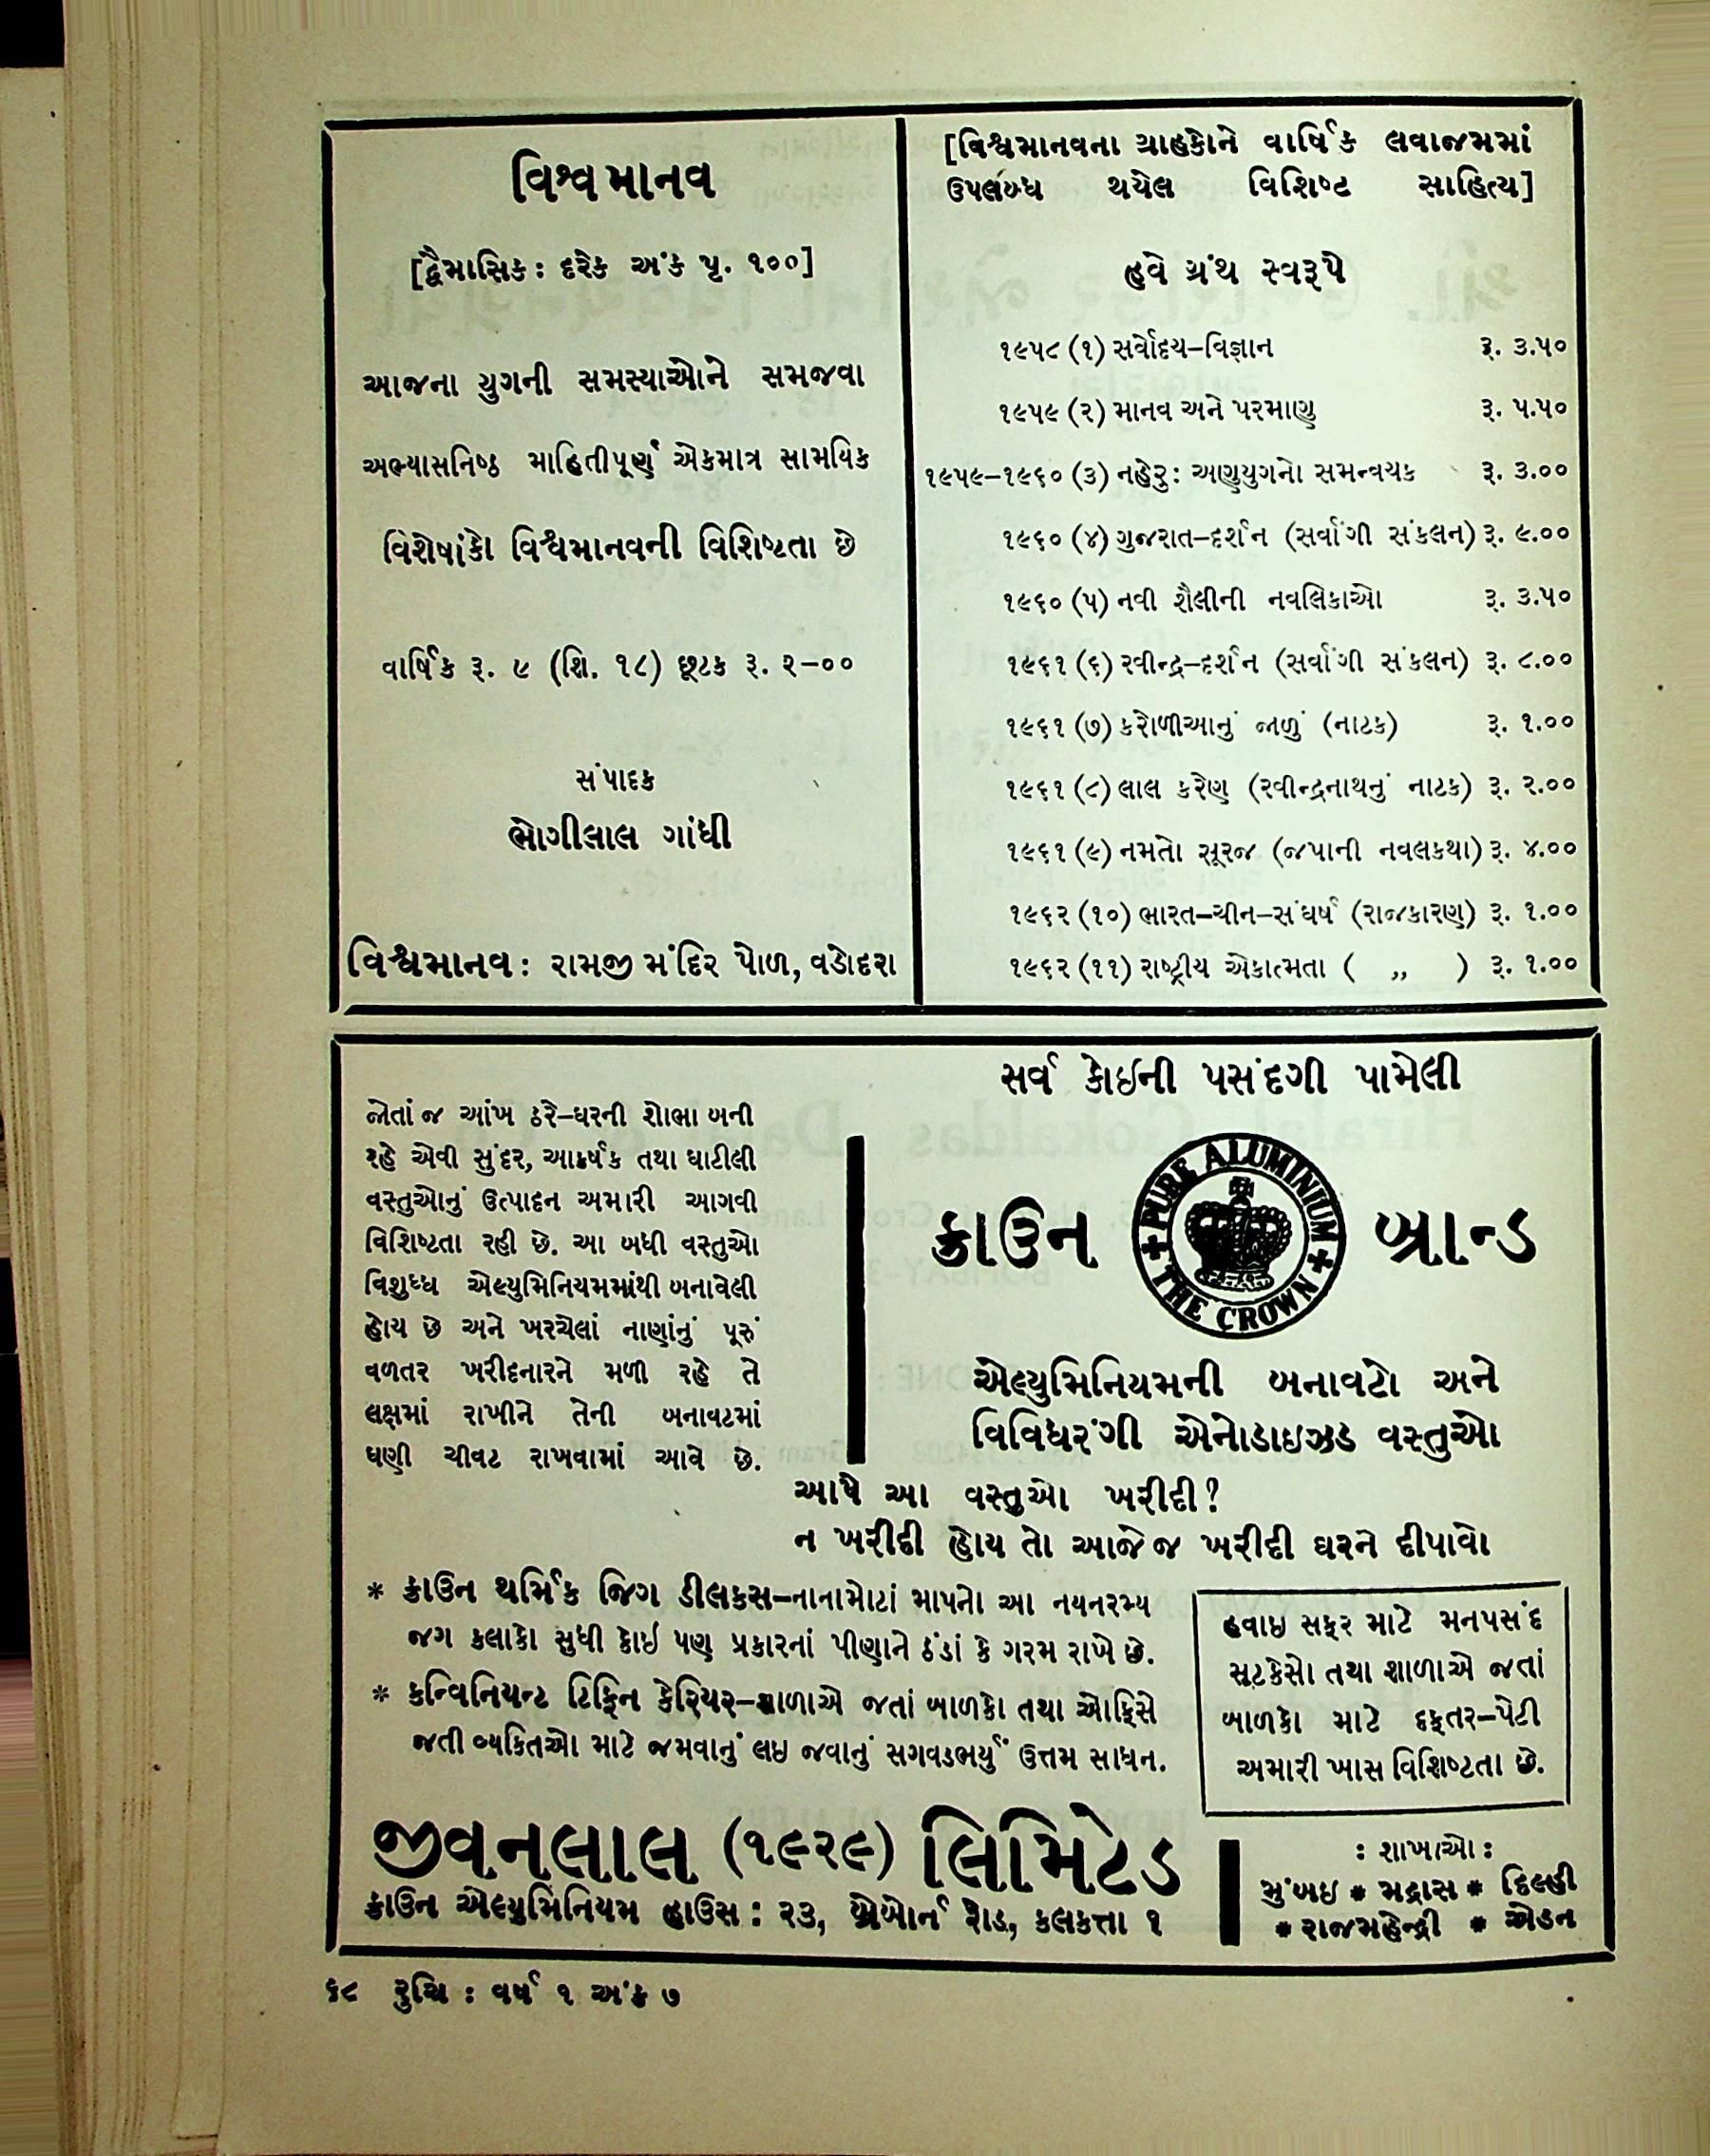 વિશ્વ માનવ
[દ્વૈમાસિક: દરેક અંક પૃ. ૧૦૦]
આજના યુગની સમસ્યાઓને સમજવા
અભ્યાસનિષ્ઠ માહિતીપૂર્ણ એકમાત્ર સામયિક
વિશેષાંકો વિશ્વમાનવની વિશિષ્ટતા છે
વાર્ષિક રૂ. ૯ (શિ. ૧૮) છૂટક રૂ. ૨-૦૦
સંપાદક
ભોગીલાલ ગાંધી
વિશ્વમાનવ: રામજી મંદિર પોળ, વડોદરા
[વિશ્વમાનવના ગ્રાહકોને વાર્ષિક લવાજમમાં
ઉપલબ્ધ થયેલ વિશિષ્ટ સાહિત્ય]
હવે ગ્રંથ સ્વરૂપે
૧૯૫૮ (૧) સર્વોદય-વિજ્ઞાન રૂ. ૩.૫૦
૧૯૫૯ (૨) માનવ અને પરમાણુ રૂ. ૫.૫૦
૧૯૫૯-૧૯૬૦ (૩) નહેરુ: અણુયુગનો સમન્વયક રૂ. ૩.૦૦
૧૯૬૦ (૪) ગુજરાત-દર્શન (સર્વાંગી સંકલન) રૂ. ૯.૦૦
૧૯૬૦ (૫) નવી શૈલીની નવલિકાઓ રૂ. ૩.૫૦
૧૯૬૧ (૬) રવીન્દ્ર-દર્શન (સર્વાંગી સંકલન) રૂ. ૮.૦૦
૧૯૬૧ (૭) કરોળીઆનું જાળું (નાટક) રૂ. ૧.૦૦
૧૯૬૧ (૮) લાલ કરેણ (રવીન્દ્રનાથનું નાટક) રૂ. ૨.૦૦
૧૯૬૧ (૯) નમતો સૂરજ (જપાની નવલકથા) રૂ. ૪.૦૦
૧૯૬૨ (૧૦) ભારત-ચીન-સંઘર્ષ (રાજકારણ) રૂ. ૧.૦૦
૧૯૬૨ (૧૧) રાષ્ટ્રીય એકાત્મતા ( ,, ) રૂ. ૧.૦૦
જોતાં જ આંખ ઠરે-ઘરની શોભા બની
રહે એવી સુંદર, આકર્ષક તથા ઘાટીલી
વસ્તુઓનું ઉત્પાદન અમારી આગવી
વિશિષ્ટતા રહી છે. આ બધી વસ્તુઓ
વિશુધ્ધ એલ્યુમિનિયમમાંથી બનાવેલી
હોય છે અને ખરચેલાં નાણાંનું પૂરું
વળતર ખરીદનારને મળી રહે તે
લક્ષમાં રાખીને તેની બનાવટમાં
ઘણી ચીવટ રાખવામાં આવે છે.
સર્વ કોઇની પસંદગી પામેલી
ક્રાઉન બ્રાન્ડ
PURE ALUMINIUM
THE CROWN
એલ્યુમિનિયમની બનાવટો અને
વિવિધરંગી એનોડાઇઝ્ડ વસ્તુઓ
આપે આ વસ્તુઓ ખરીદી?
ન ખરીદી હોય તો આજે જ ખરીદી ઘરને દીપાવો
* ક્રાઉન થર્મિક જિગ ડીલકસ-નાનામોટાં માપનો આ નયનરમ્ય
જગ કલાકો સુધી કોઇ પણ પ્રકારનાં પીણાને ઠંડાં કે ગરમ રાખે છે.
* કન્વિનિયન્ટ ટિફિન કેરિયર-શાળાએ જતાં બાળકો તથા ઓફિસે
જતી વ્યકિતઓ માટે જમવાનું લઇ જવાનું સગવડભર્યું ઉત્તમ સાધન.
હવાઇ સફર માટે મનપસંદ
સૂટકેસો તથા શાળાએ જતાં
બાળકો માટે દફતર-પેટી
અમારી ખાસ વિશિષ્ટતા છે.
જીવનલાલ (૧૯૨૯) લિમિટેડ
ક્રાઉન એલ્યુમિનિયમ હાઉસ: ૨૩, બ્રેબોર્ન રોડ, કલકત્તા ૧
: શાખાઓ :
મુંબઇ * મદ્રાસ * દિલ્હી
* રાજમહેન્દ્રી * એડન
૬૮ રુચિ : વર્ષ ૧ અંક ૭